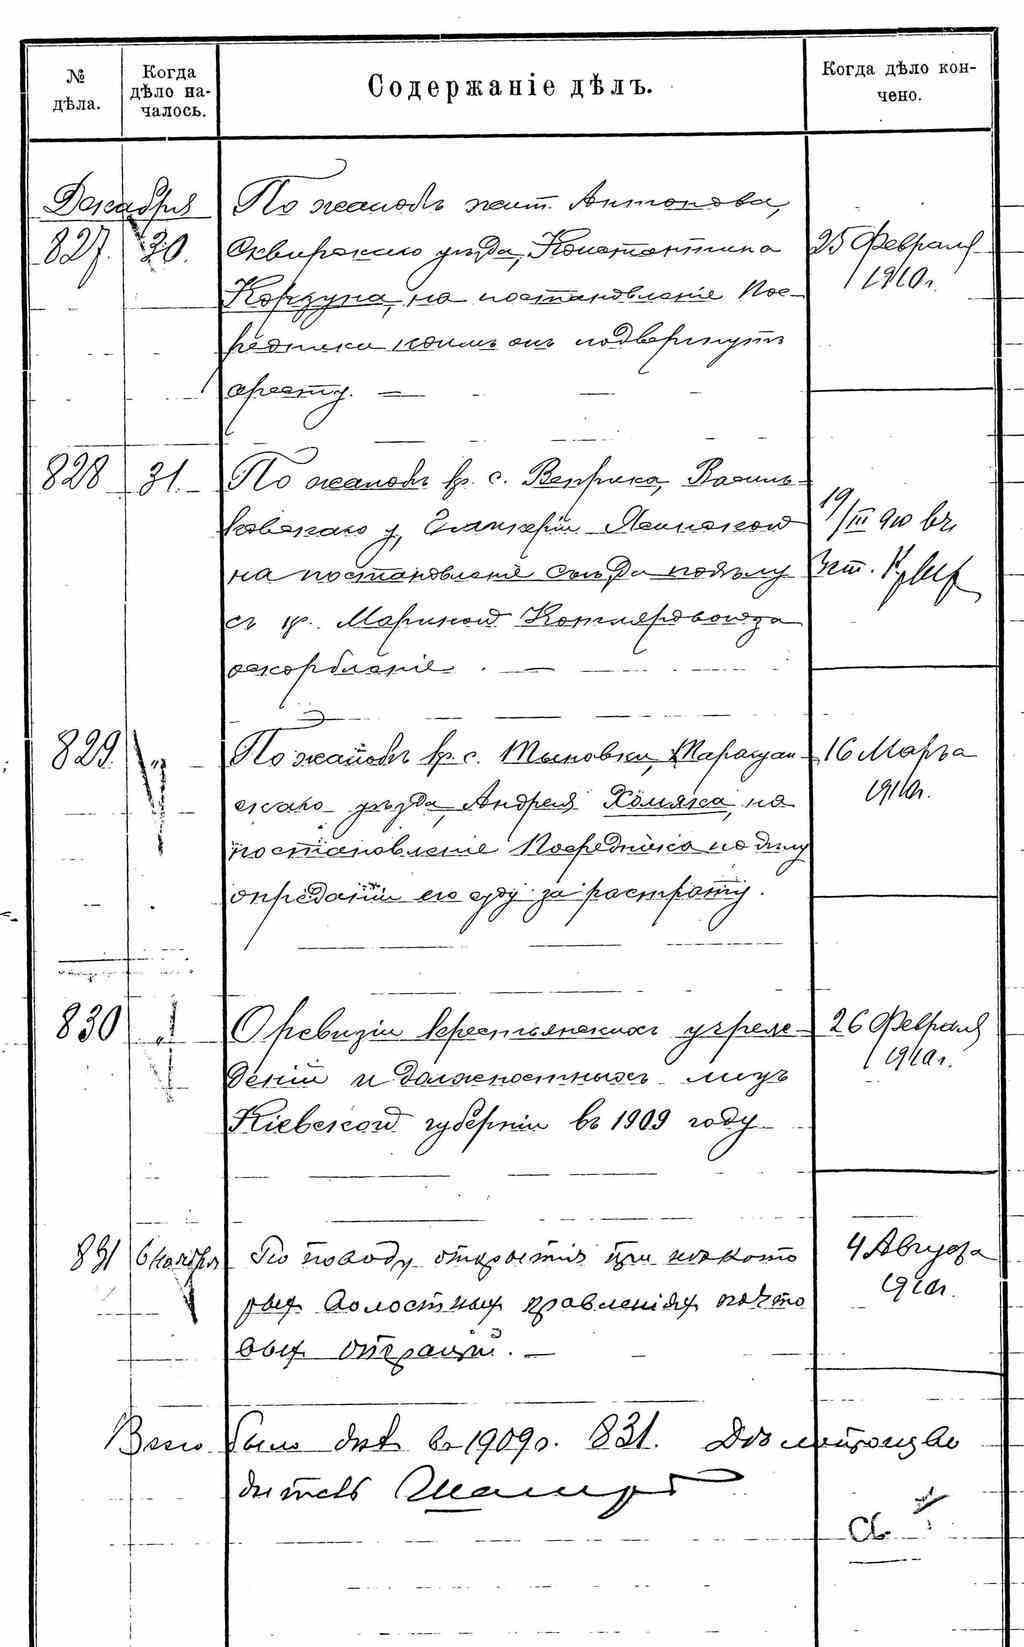 № дѣла.
Когда дѣло на-
чалось.
Содержаніе дѣлъ.
Когда дѣло кон-
чено.
Декабря
827. 30. По жалобѣ жит. Антонова,
Сквирскаго уѣзда, Константина
Корзуна, на постановленіе Пос-
редника коимъ онъ подвергнутъ
аресту. —
25 Февраля
1910 г.
828 31. По жалобѣ кр. с. Веприка, Василь-
ковскаго у, Гликеріи Ясинской
на постановленіе съѣзда по дѣлу
съ кр. Мариной Котляровой за
оскорбленіе. —
19/III 910 въ
829. „ По жалобѣ кр. с. Тыновки, Таращан-
скаго уѣзда, Андрея Хомяка, на
постановленіе Посредника по дѣлу
о преданіи его суду за растрату.
16 Марта
1910 г.
830 „ О ревизіи крестьянскихъ учреж-
деній и должностныхъ лицъ
Кіевской губерніи въ 1909 году
26 Февраля
1910 г.
831 6 Ноября По поводу открытія при нѣкото
рыхъ волостныхъ правленіяхъ почто
выхъ операцій. —
4 Августа
1910 г.
Всего было дѣлъ въ 1909 г. 831. Дѣлопроизво
дитель
Св.